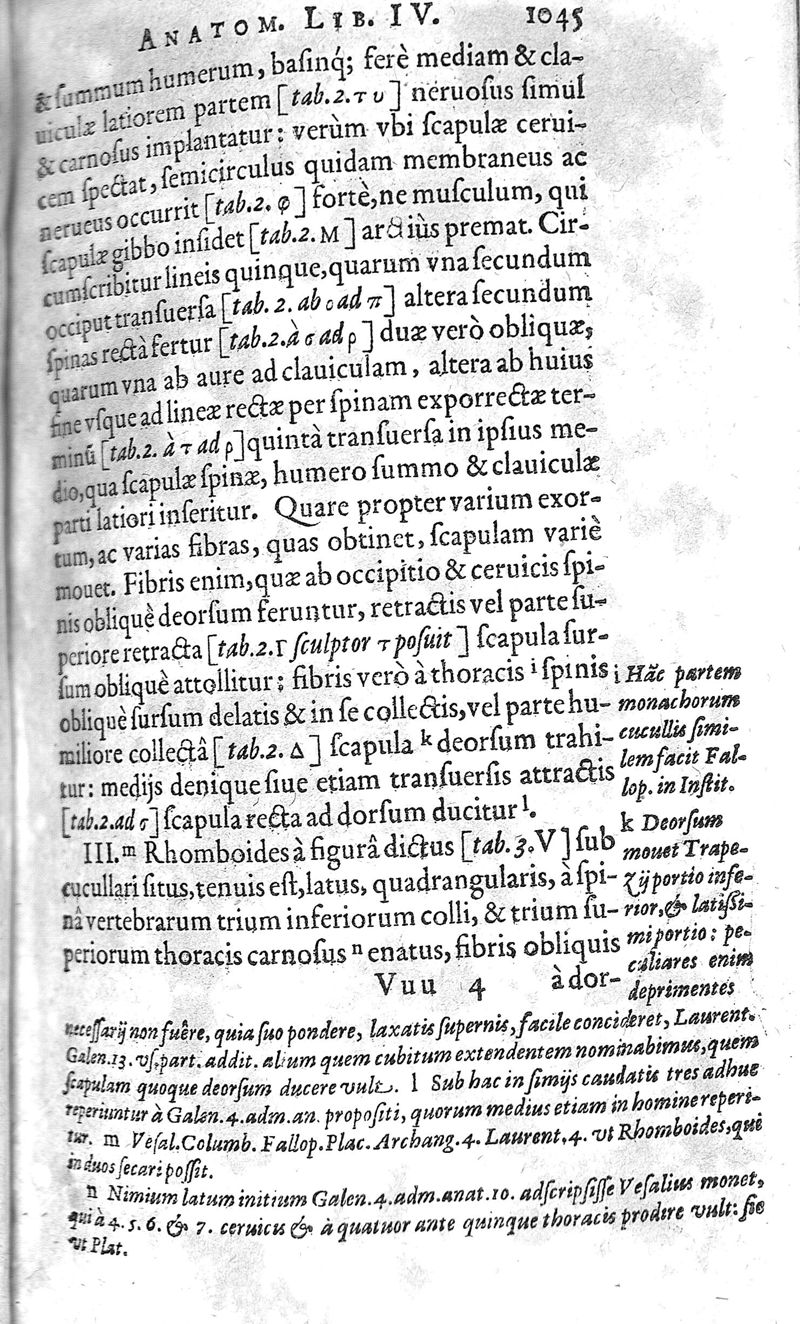 ANATOM. LIB. IV. 1045
& ſummum humerum, baſinq́; ferè mediam & cla-
uiculæ latiorem partem [tab.2.τ υ] neruoſus ſimul
& carnoſus implantatur: verùm vbi ſcapulæ cerui-
cem ſpectat, ſemicirculus quidam membraneus ac
nerueus occurrit [tab.2. φ] fortè, ne muſculum, qui
ſcapulæ gibbo inſidet [tab.2. M] arctiùs premat. Cir-
cumſcribitur lineis quinque, quarum vna ſecundum
occiput tranſuerſa [tab. 2. ab ο ad π] altera ſecundum
ſpinas rectà fertur [tab.2.à σ ad ρ] duæ verò obliquæ,
quarum vna ab aure ad clauiculam, altera ab huius
fine vſque ad lineæ rectæ per ſpinam exporrectæ ter-
minũ [tab.2. à τ ad ρ] quintà tranſuerſa in ipſius me-
dio, qua ſcapulæ ſpinæ, humero ſummo & clauiculæ
parti latiori inſeritur. Quare propter varium exor-
tum, ac varias fibras, quas obtinet, ſcapulam variè
mouet. Fibris enim, quæ ab occipitio & ceruicis ſpi-
nis obliquè deorſum feruntur, retractis vel parte ſu-
periore retracta [tab.2.Γ ſculptor τ poſuit] ſcapula ſur-
ſum obliquè attollitur: fibris verò à thoracis i ſpinis
obliquè ſurſum delatis & in ſe collectis, vel parte hu-
miliore collectâ [tab.2. Δ] ſcapula k deorſum trahi-
tur: medijs denique ſiue etiam tranſuerſis attractis
[tab.2.ad ς] ſcapula recta ad dorſum ducitur l.
III. m Rhomboides à figurâ dictus [tab.3.V] ſub
cucullari ſitus, tenuis eſt, latus, quadrangularis, à ſpi-
nâ vertebrarum trium inferiorum colli, & trium ſu-
periorum thoracis carnoſus n enatus, fibris obliquis
Vuu 4 à dor-
i Hãc partem
monachorum
cucullis ſimi-
lem facit Fal-
lop. in Inſtit.
k Deorſum
mouet Trape-
zij portio infe-
rior, & latiſſi-
mi portio: pe-
culiares enim
deprimentes
neceſſarij non fuêre, quia ſuo pondere, laxatis ſupernis, facile concideret, Laurent.
Galen.13. vſ. part. addit. alium quem cubitum extendentem nominabimus, quem
ſcapulam quoque deorſum ducere vult. l Sub hac in ſimijs caudatis tres adhuc
reperiuntur à Galen.4.adm.an. propoſiti, quorum medius etiam in homine reperi-
tur. m Veſal.Columb. Fallop.Plac. Archang.4. Laurent.4. vt Rhomboides, qui
in duos ſecari poſſit.
n Nimium latum initium Galen.4.adm.anat.10. adſcripſiſſe Veſalius monet,
qui à 4. 5. 6. & 7. ceruicis & à quatuor ante quinque thoracis prodire vult: ſic
vt Plat.